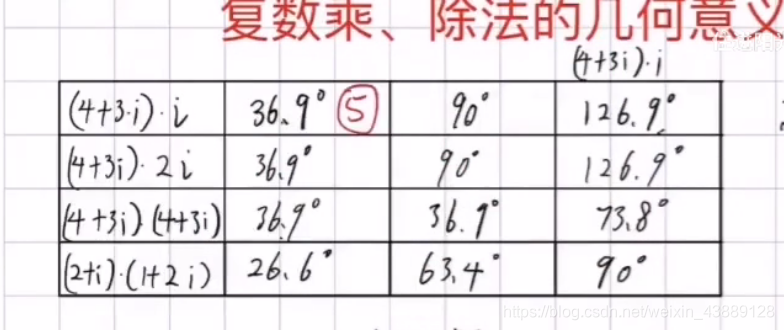 复数乘、除法的几何意义
(4+3i)·i
(4+3·i)·i 36.9° 5 90° 126.9°
(4+3i)·2i 36.9° 90° 126.9°
(4+3i)(4+3i) 36.9° 36.9° 73.8°
(2+i)·(1+2i) 26.6° 63.4° 90°
https://blog.csdn.net/weixin_43889128